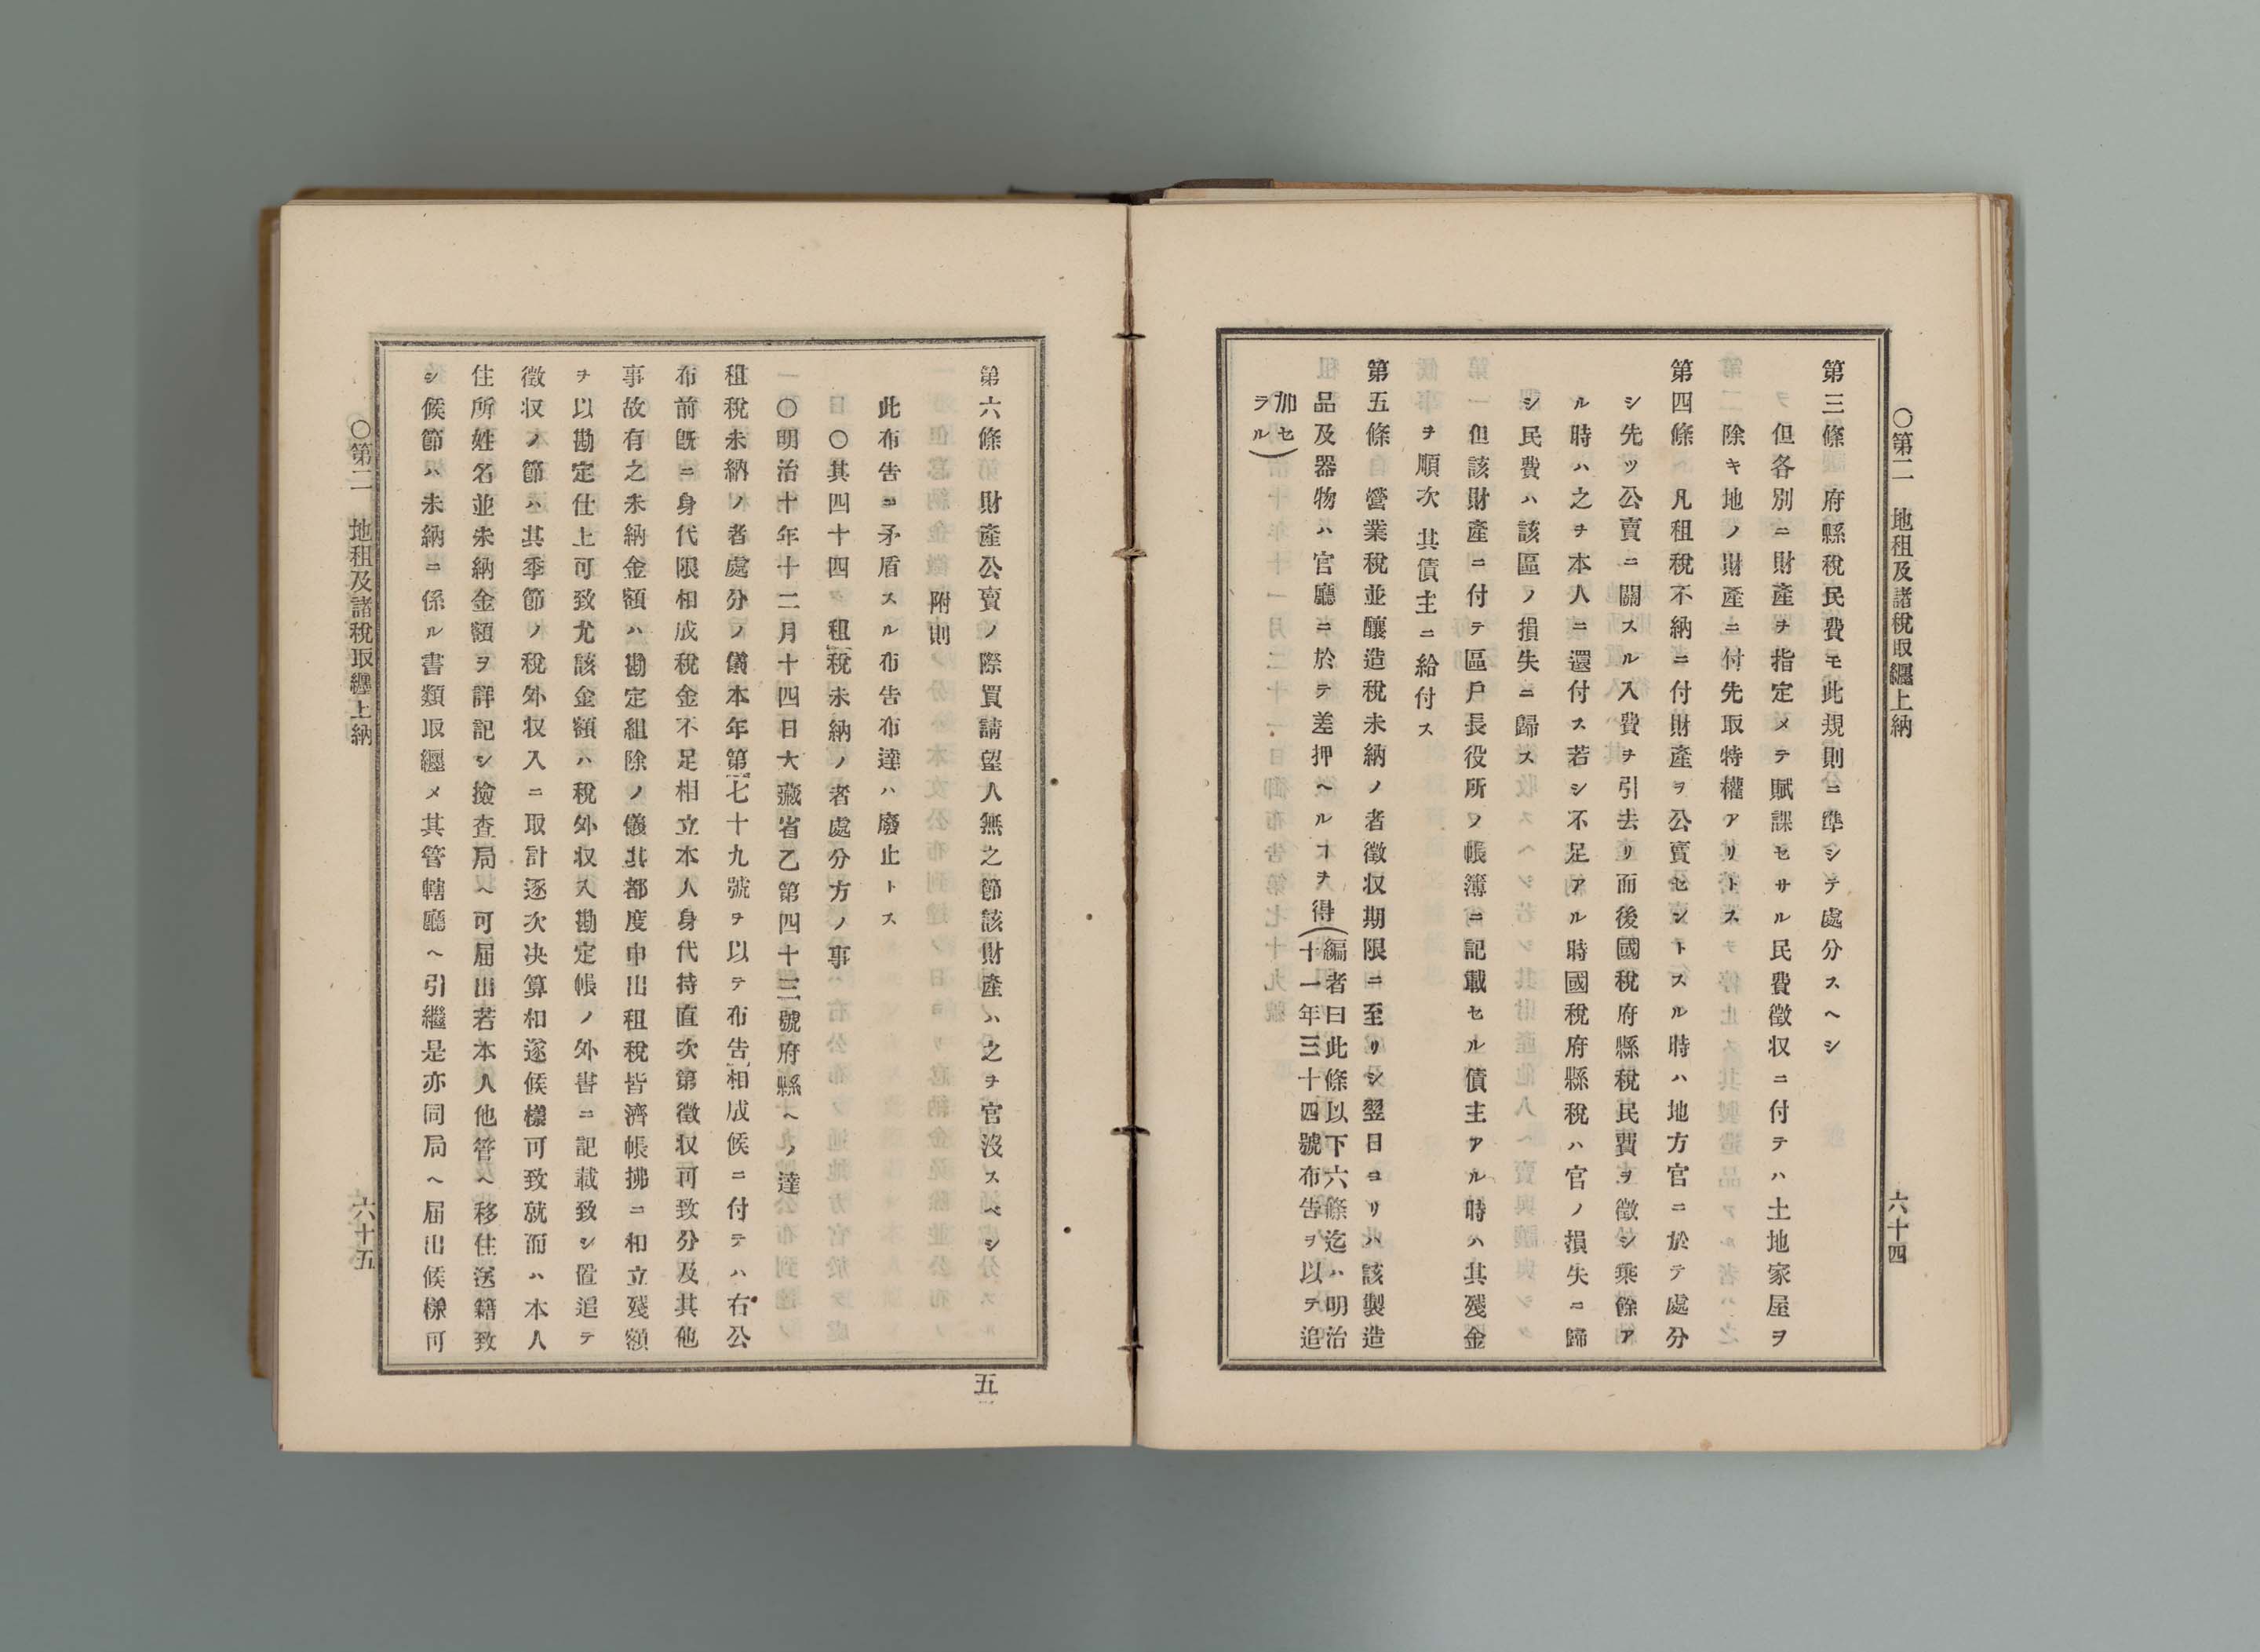 ○第二　地租及諸稅取纒上納
六十四
第三條　府縣稅民費モ此規則ニ準シテ處分スヘシ
但各別ニ財產ヲ指定メテ賦課セサル民費徵収ニ付テハ土地家屋ヲ
除キ地ノ財產ニ付先取特權アリトス
第四條　凡租稅不納ニ付財產ヲ公賣セントスル時ハ地方官ニ於テ處分
シ先ツ公賣ニ關スル入費ヲ引去リ而後國稅府縣稅民費ヲ徵シ乘餘ア
ル時ハ之ヲ本人ニ還付ス若シ不足アル時國稅府縣稅ハ官ノ損失ニ歸
シ民費ハ該區ノ損失ニ歸ス
但該財產ニ付テ區戶長役所ノ帳簿ニ記載セル債主アル時ハ其殘金
ヲ順次其債主ニ給付ス
第五條　營業稅並釀造稅未納ノ者徵収期限ニ至リシ翌日ヨリハ該製造
品及器物ハ官廳ニ於テ差押ヘルヿヲ得
(編者曰此條以下六條迄ハ明治
十一年三十四號布告ヲ以テ追
加セ
ラル)
第六條　財產公賣ノ際買請望人無之節該財產ハ之ヲ官沒スヘシ
附則
此布告ニ矛盾スル布告布達ハ廢止トス
○其四十四　租稅未納ノ者處分方ノ事
○明治十年十二月十四日大藏省乙第四十三號府縣ヘノ達
租稅未納ノ者處分ノ儀本年第七十九號ヲ以テ布告相成候ニ付テハ右公
布前既ニ身代限相成稅金不足相立本人身代持直次第徵収可致分及其他
事故有之未納金額ハ勘定組除ノ儀其都度申出租稅皆濟帳拂ニ相立殘額
ヲ以勘定仕上可致尤該金額ハ稅外収入勘定帳ノ外書ニ記載致シ置追テ
徵収ノ節ハ其季節ノ稅外収入ニ取計逐次決算相遂候樣可致就而ハ本人
住所姓名並未納金額ヲ詳記シ撿查局ヘ可屆出若本人他管ヘ移住送籍致
シ候節ハ未納ニ係ル書類取纒メ其管轄廳ヘ引繼是亦同局ヘ屆出候樣可
○第二　地租及諸稅取纒上納
六十五
五